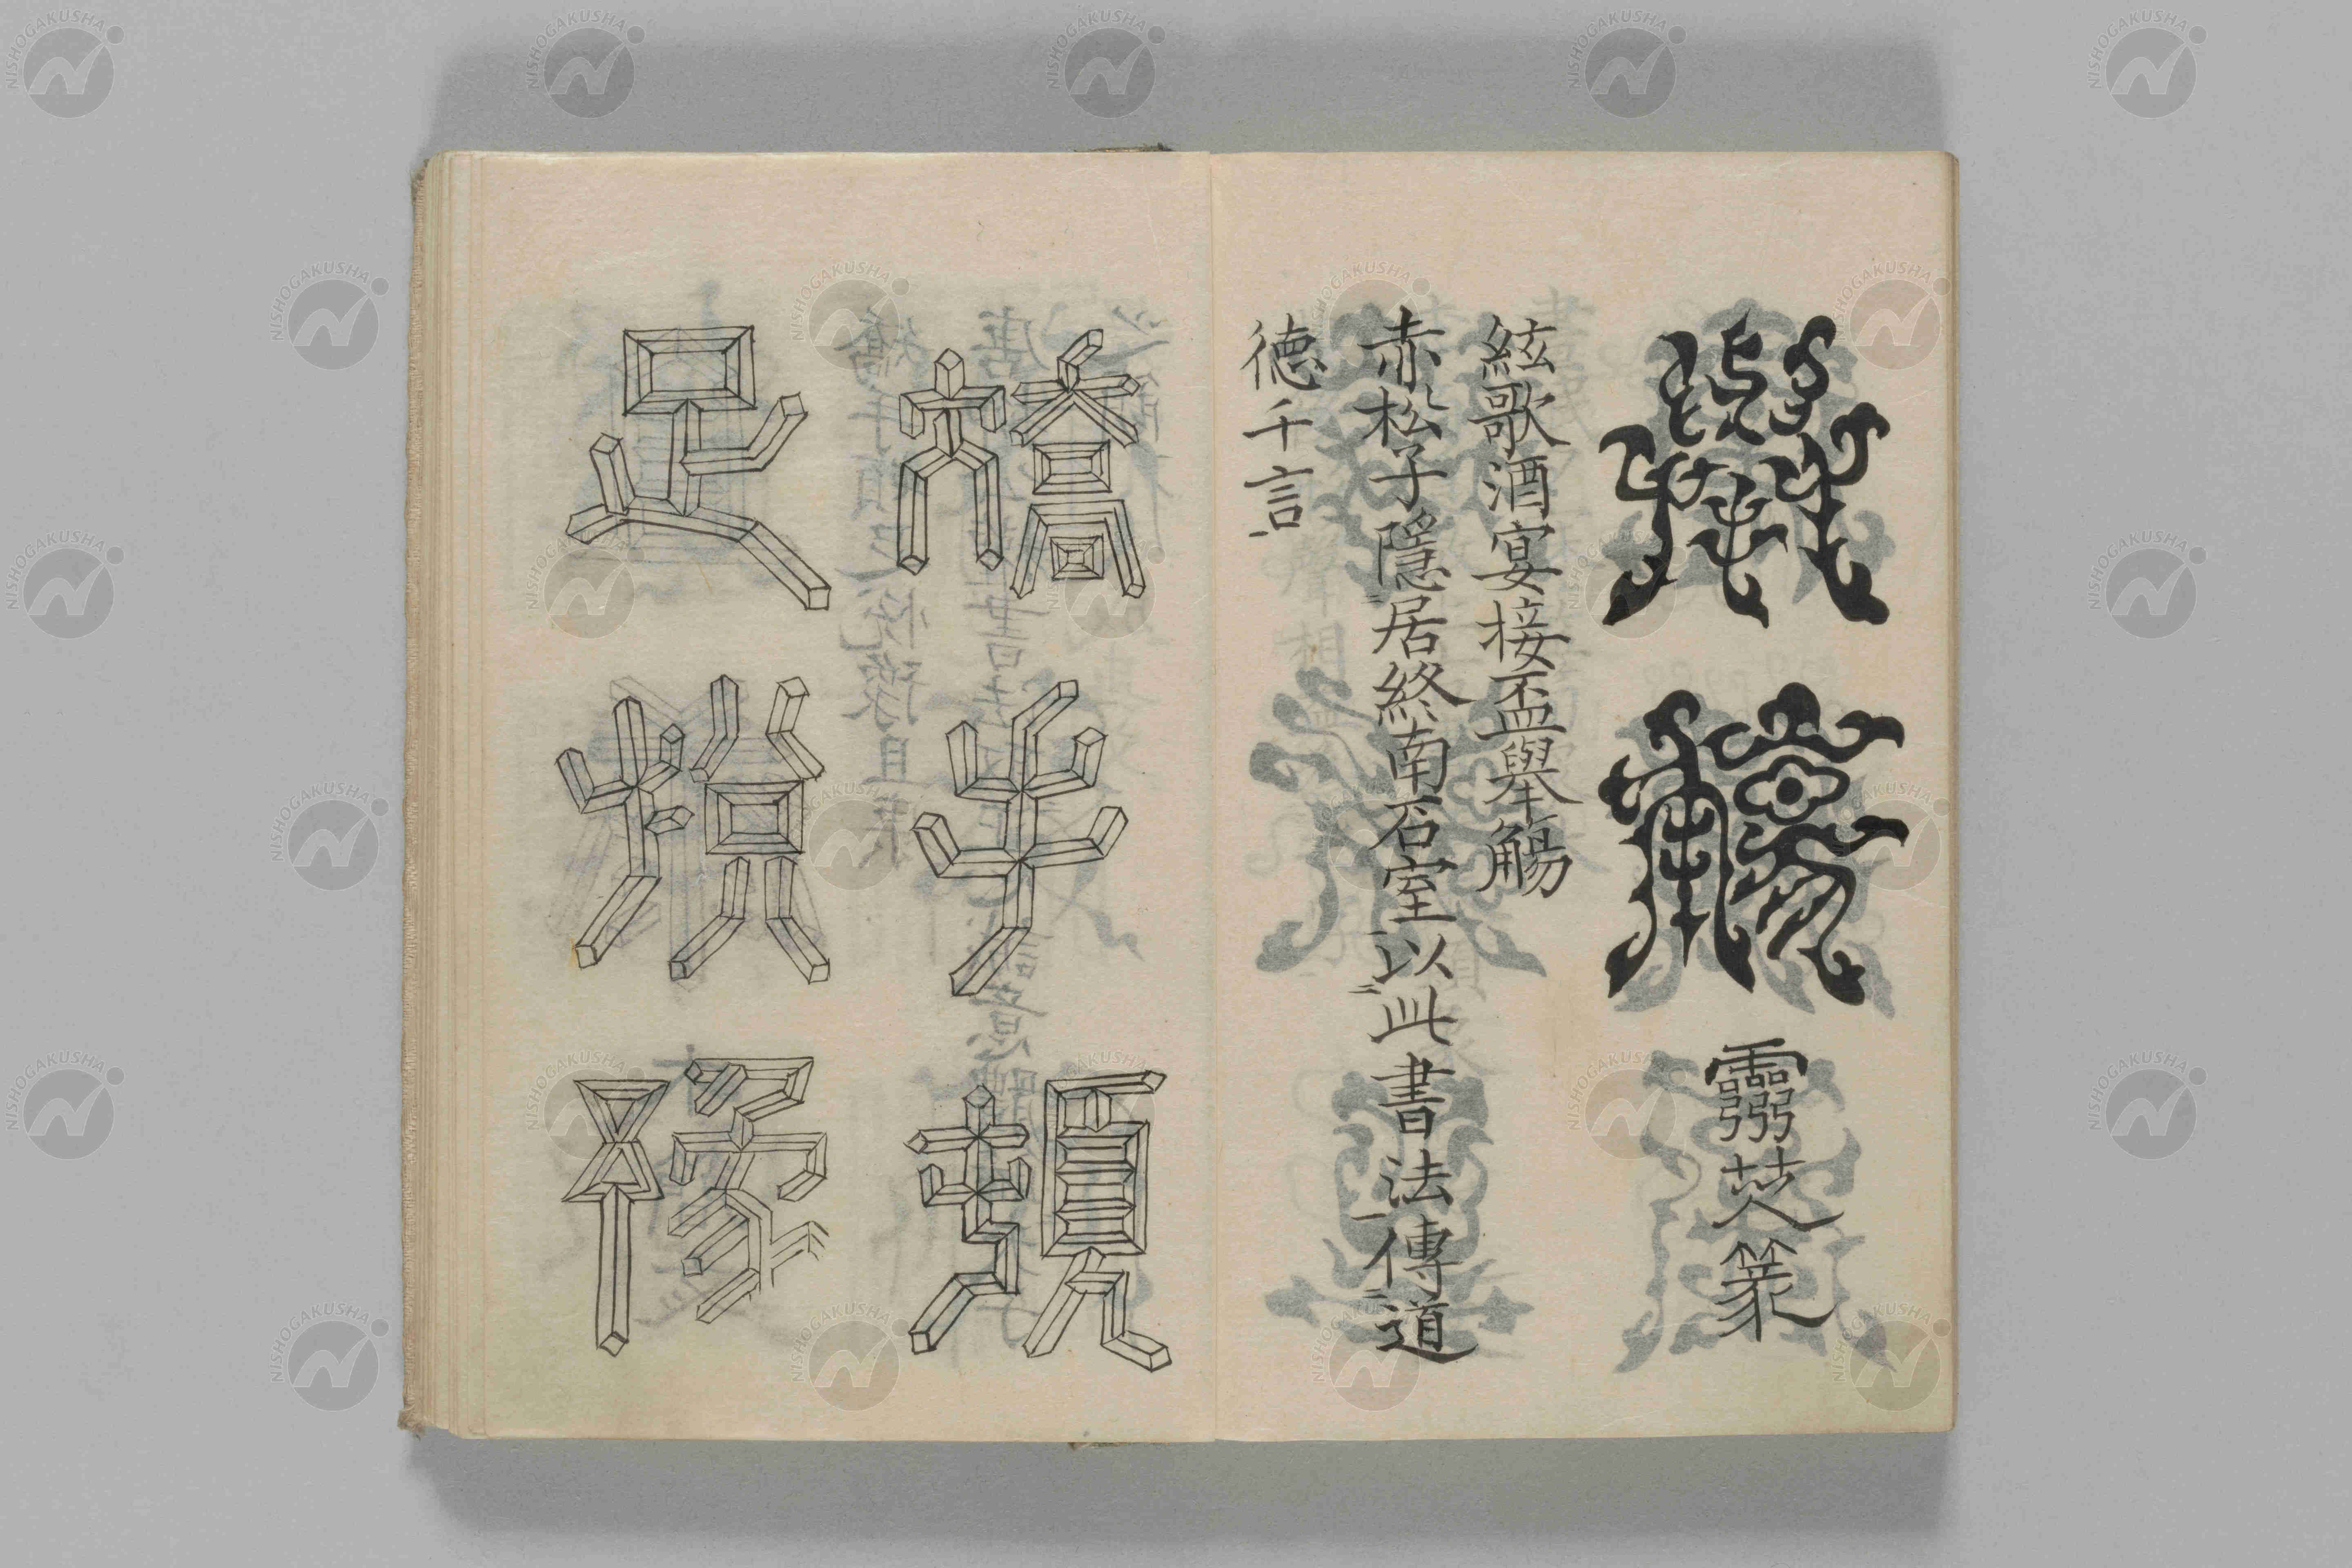 舉觴 靈芝篆
絃歌酒宴接盃舉觴
赤松子隱居終南石室以此書法傳道
徳千言
矯手頓
足悅豫
NISHOGAKUSHA